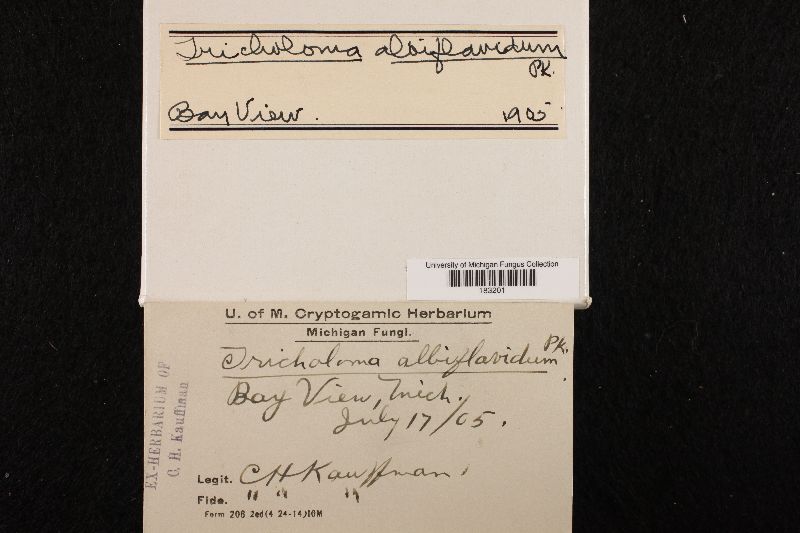 Tricholoma albiflavidum
Pk.
Bay View. 1905
University of Michigan Fungus Collection
183201
U. of M. Cryptogamic Herbarium
Michigan Fungi.
Tricholoma albiflavidum Pk.
Bay View, Mich.
July 17/05.
EX-HERBARIUM OF
C. H. Kauffman
Legit. C H Kauffman
Fide. " " "
Form 206 2ed(4 24-14)10M